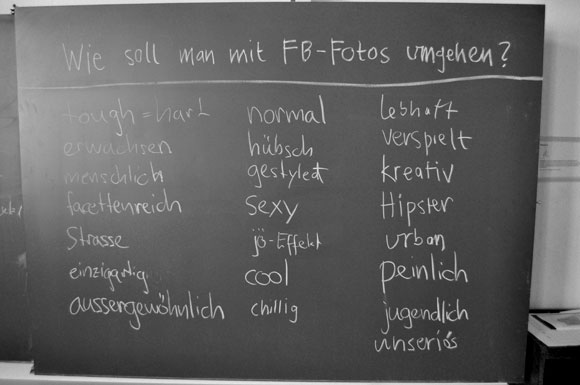 Wie soll man mit FB-Fotos umgehen?
tough=hart
erwachsen
menschlich
facettenreich
Strasse
einzigartig
aussergewöhnlich
normal
hübsch
gestyled
sexy
jö-Effekt
cool
chillig
lebhaft
verspielt
kreativ
Hipster
urban
peinlich
jugendlich
unseriös